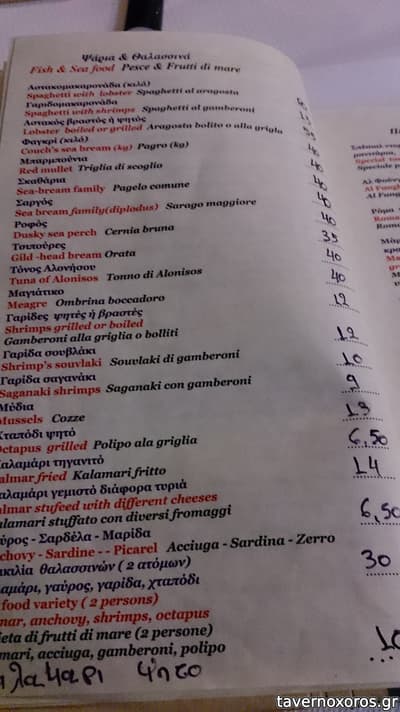 Ψάρια & Θαλασσινά
Fish & Sea food Pesce & Frutti di mare
Αστακομακαρονάδα (κιλό)
Spaghetti with lobster Spaghetti al aragosta
Γαριδομακαρονάδα
Spaghetti with shrimps Spaghetti al gamberoni
Αστακός βραστός ή ψητός
Lobster boiled or grilled Aragosta bolito o alla grigla
Φαγκρί (κιλό)
Couch's sea bream (kg) Pagro (kg)
Μπαρμπούνια
Red mullet Triglia di scoglio
Σκαθάρια
Sea-bream family Pagelo comune
Σαργός
Sea bream family(diplodus) Sarago maggiore
Ροφός
Dusky sea perch Cernia bruna 40
Τσιπούρες
Gild -head bream Orata 35
Τόνος Αλονήσου
Tuna of Alonisos Tonno di Alonisos 40
Μαγιάτικο
Meagre Ombrina boccadoro 40
Γαρίδες ψητές ή βραστές
Shrimps grilled or boiled 12
Gamberoni alla griglia o bolliti
Γαρίδα σουβλάκι
Shrimp's souvlaki Souvlaki di gamberoni 12
Γαρίδα σαγανάκι
Saganaki shrimps Saganaki con gamberoni 10
Μύδια
Mussels Cozze 9
Χταπόδι ψητό
Octapus grilled Polipo ala griglia 13
Καλαμάρι τηγανιτό
Calmar fried Kalamari fritto 6,50
Καλαμάρι γεμιστό διάφορα τυριά
Calmar stufeed with different cheeses 14
Calamari stuffato con diversi fromaggi
Γαύρος - Σαρδέλα - Μαρίδα
Anchovy - Sardine - - Picarel Acciuga - Sardina - Zerro 6,50
Ποικιλία θαλασσινών ( 2 ατόμων)
Καλαμάρι, γαύρος, γαρίδα, χταπόδι 30
food variety ( 2 persons)
mar, anchovy, shrimps, octapus
ieta di frutti di mare (2 persone)
mari, acciuga, gamberoni, polipo
λαμαρι ψητο
tavernoxoros.gr